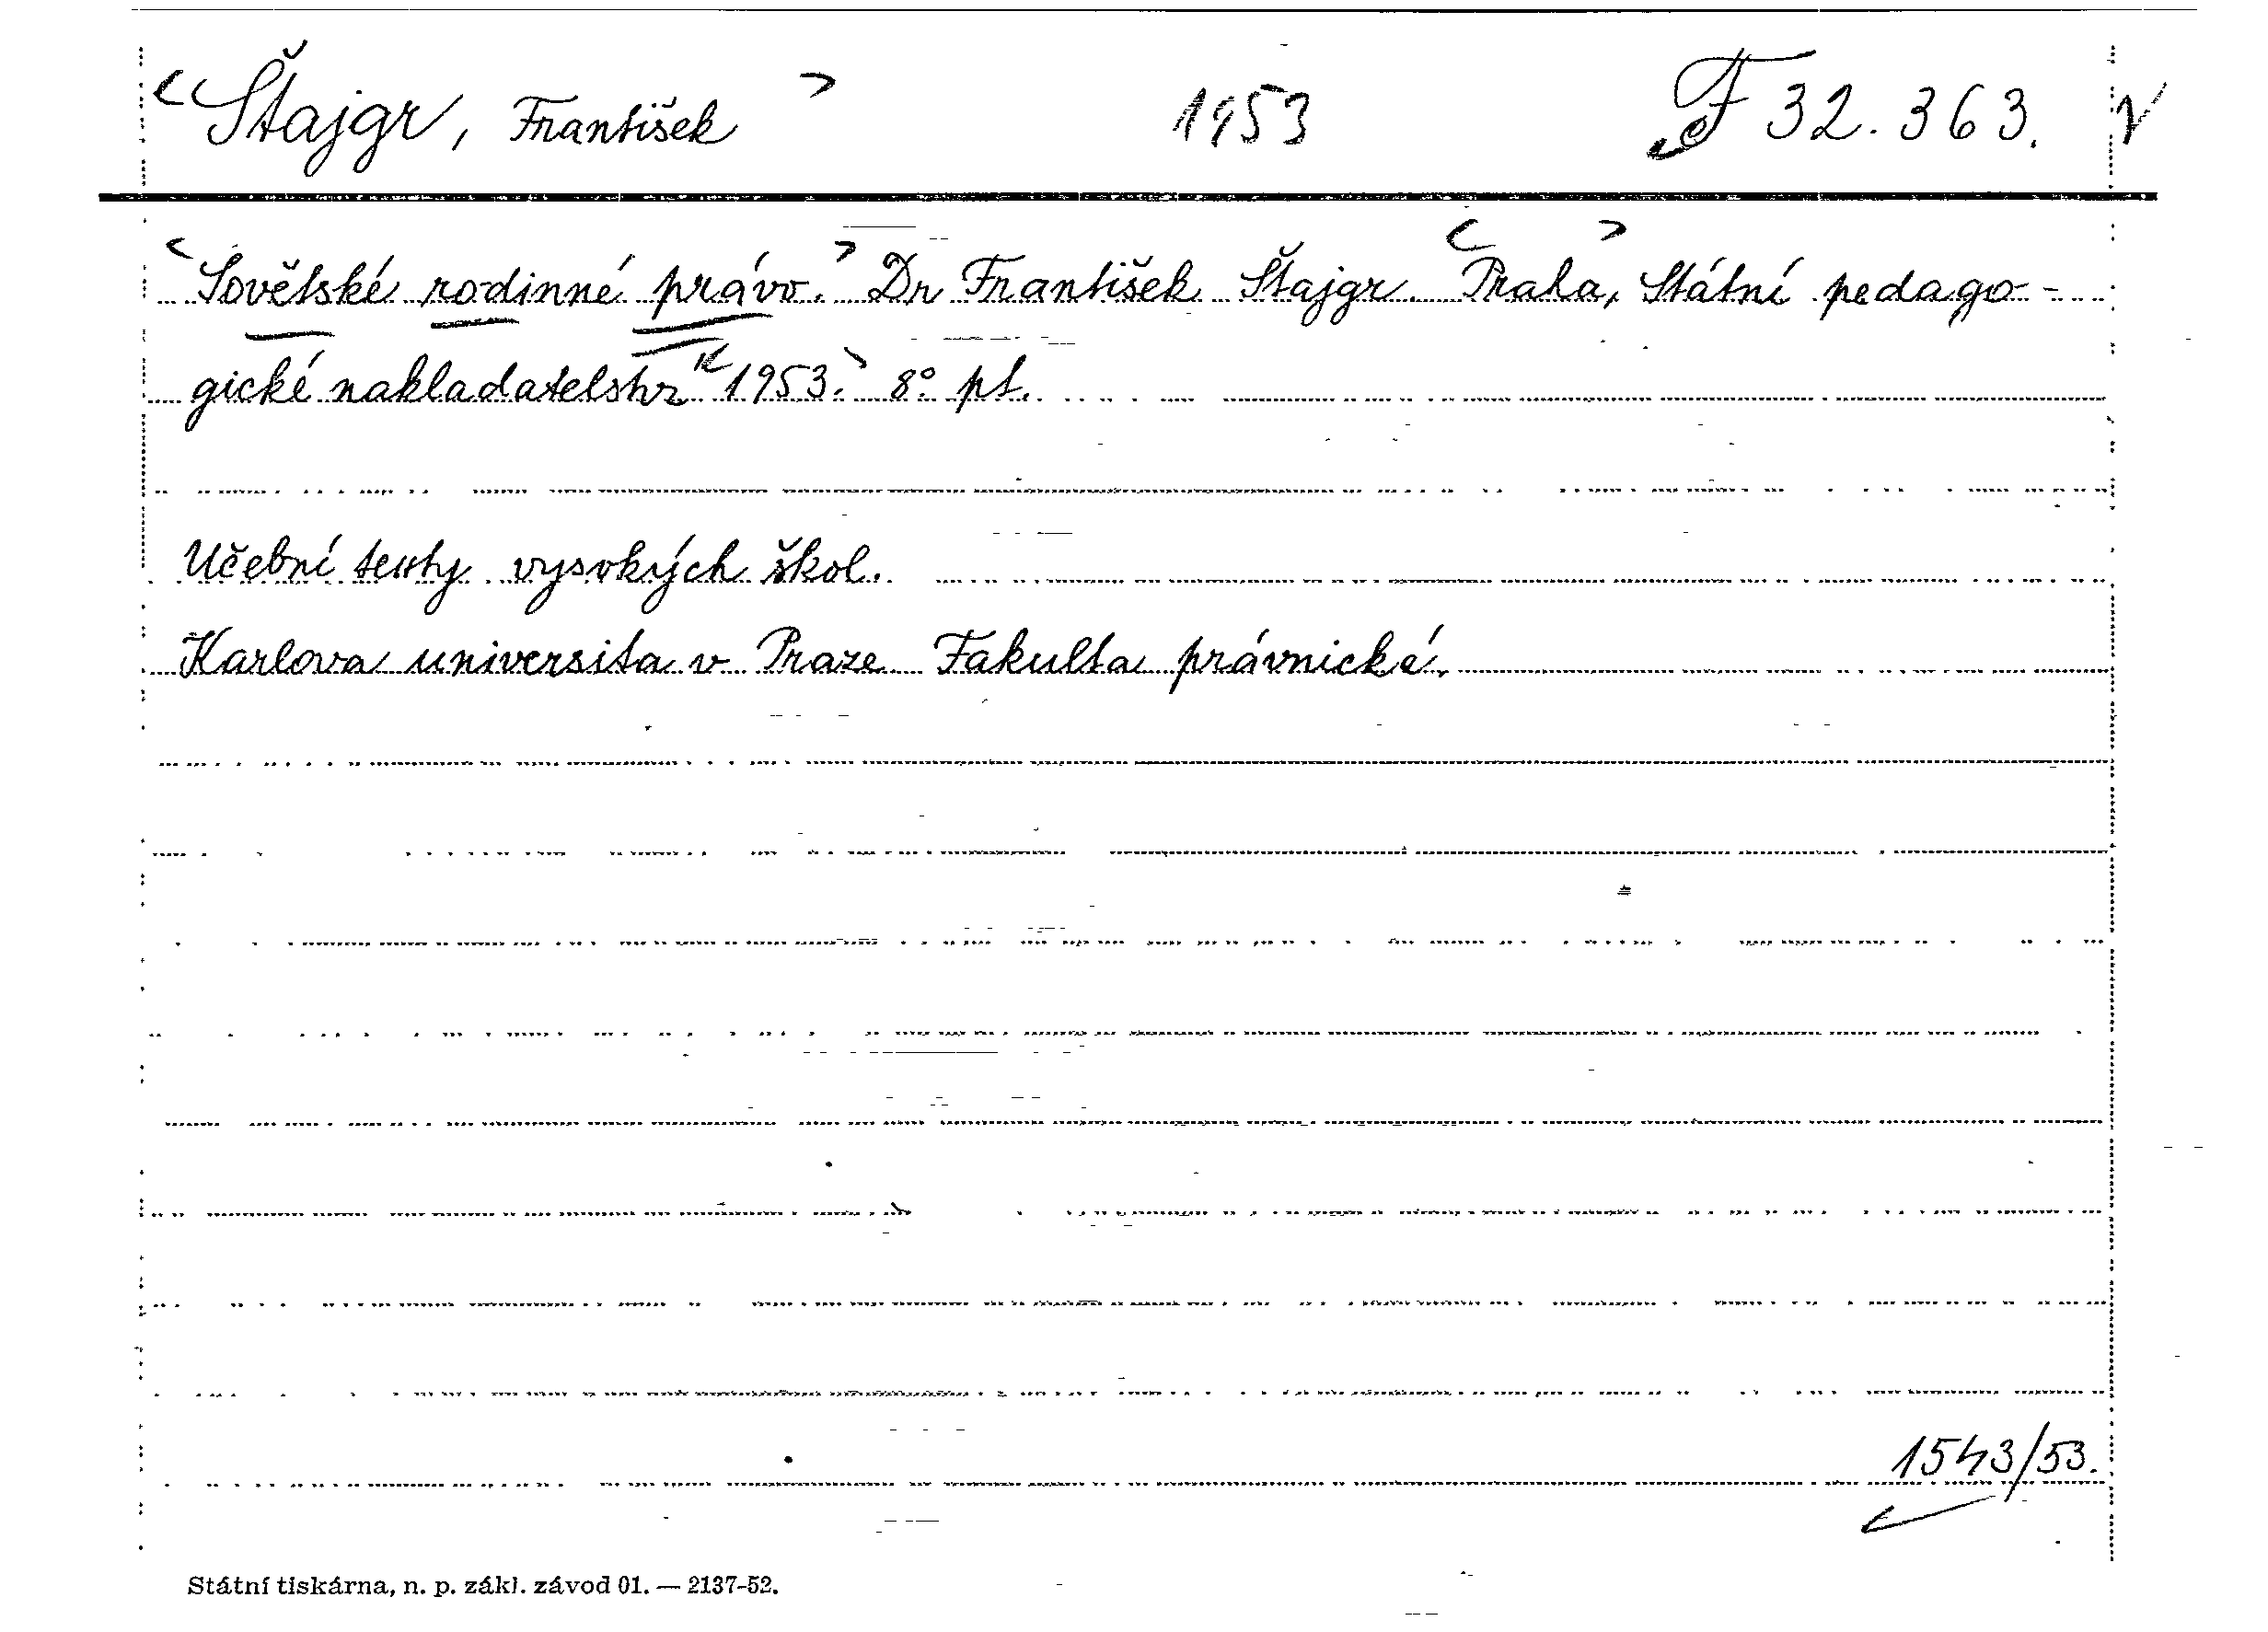 <Štajgr, František> 1953 F 32.363. V
<Sovětské rodinné právo.> Dr František Štajgr. <Praha>, Státní pedago-
gické nakladatelstv <1953.> 8° pt.
Učební texty vysokých škol.
Karlova universita v Praze Fakulta právnické.
1543/53.
Státní tiskárna, n. p. zákl. závod 01. — 2137-52.